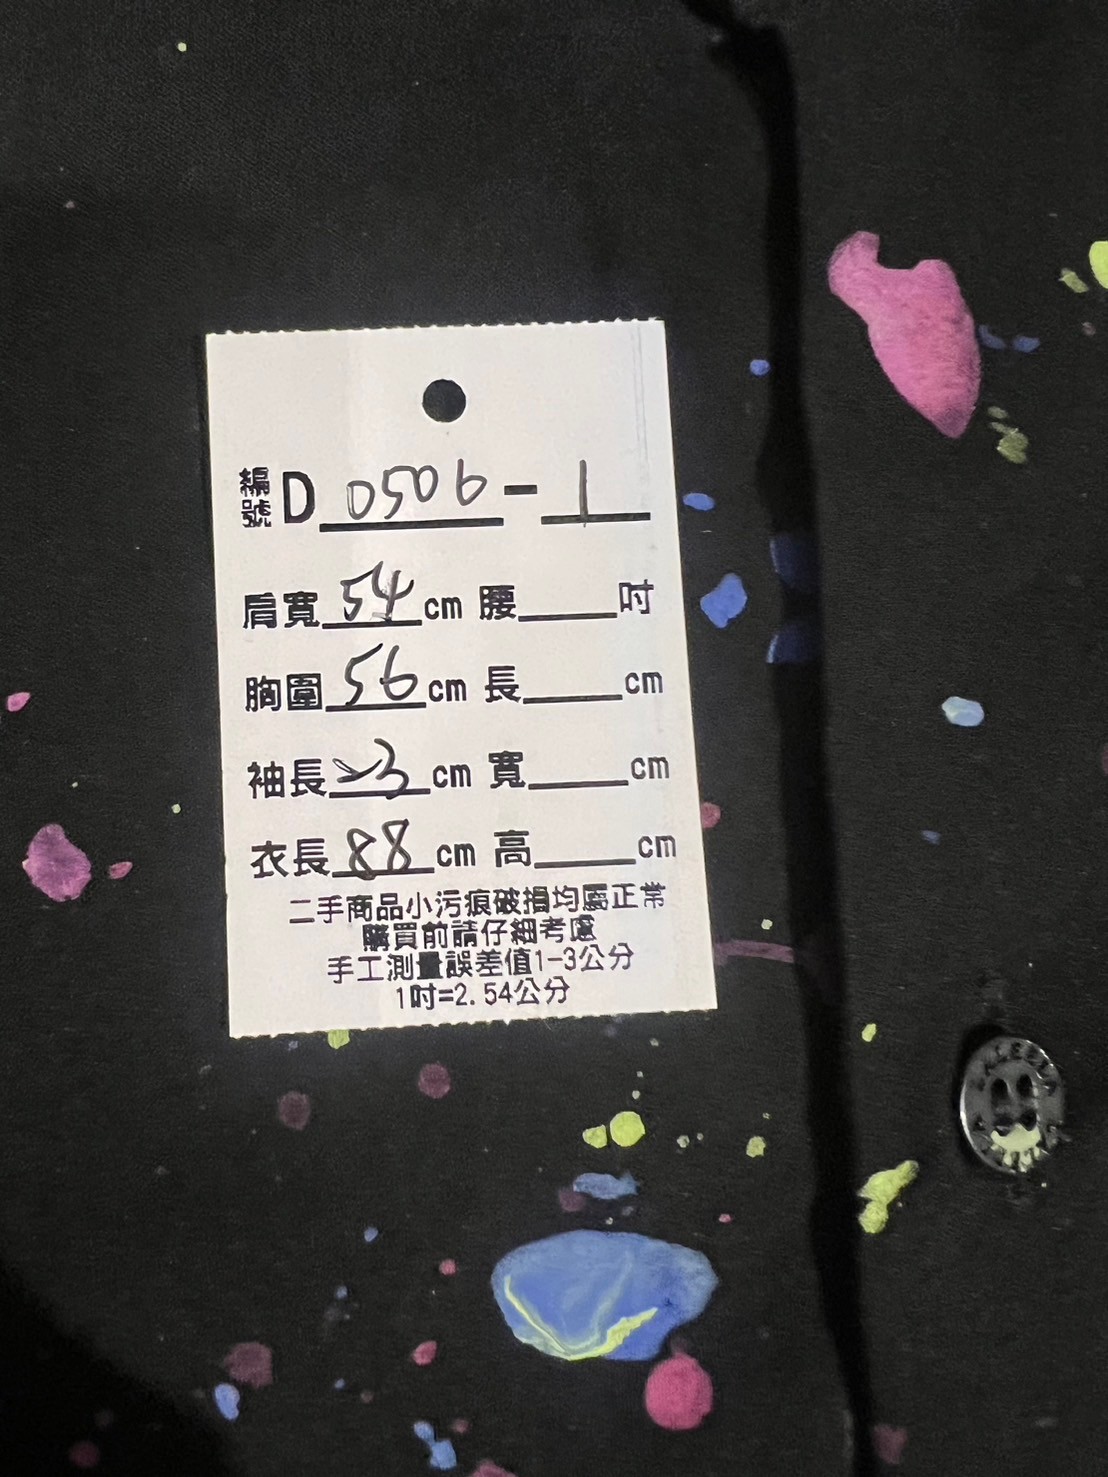 編號 D 0506 - 1
肩寬 54 cm 腰____吋
胸圍 56 cm 長____cm
袖長 23 cm 寬____cm
衣長 88 cm 高____cm
二手商品小污痕破損均屬正常
購買前請仔細考慮
手工測量誤差值1-3公分
1吋=2.54公分